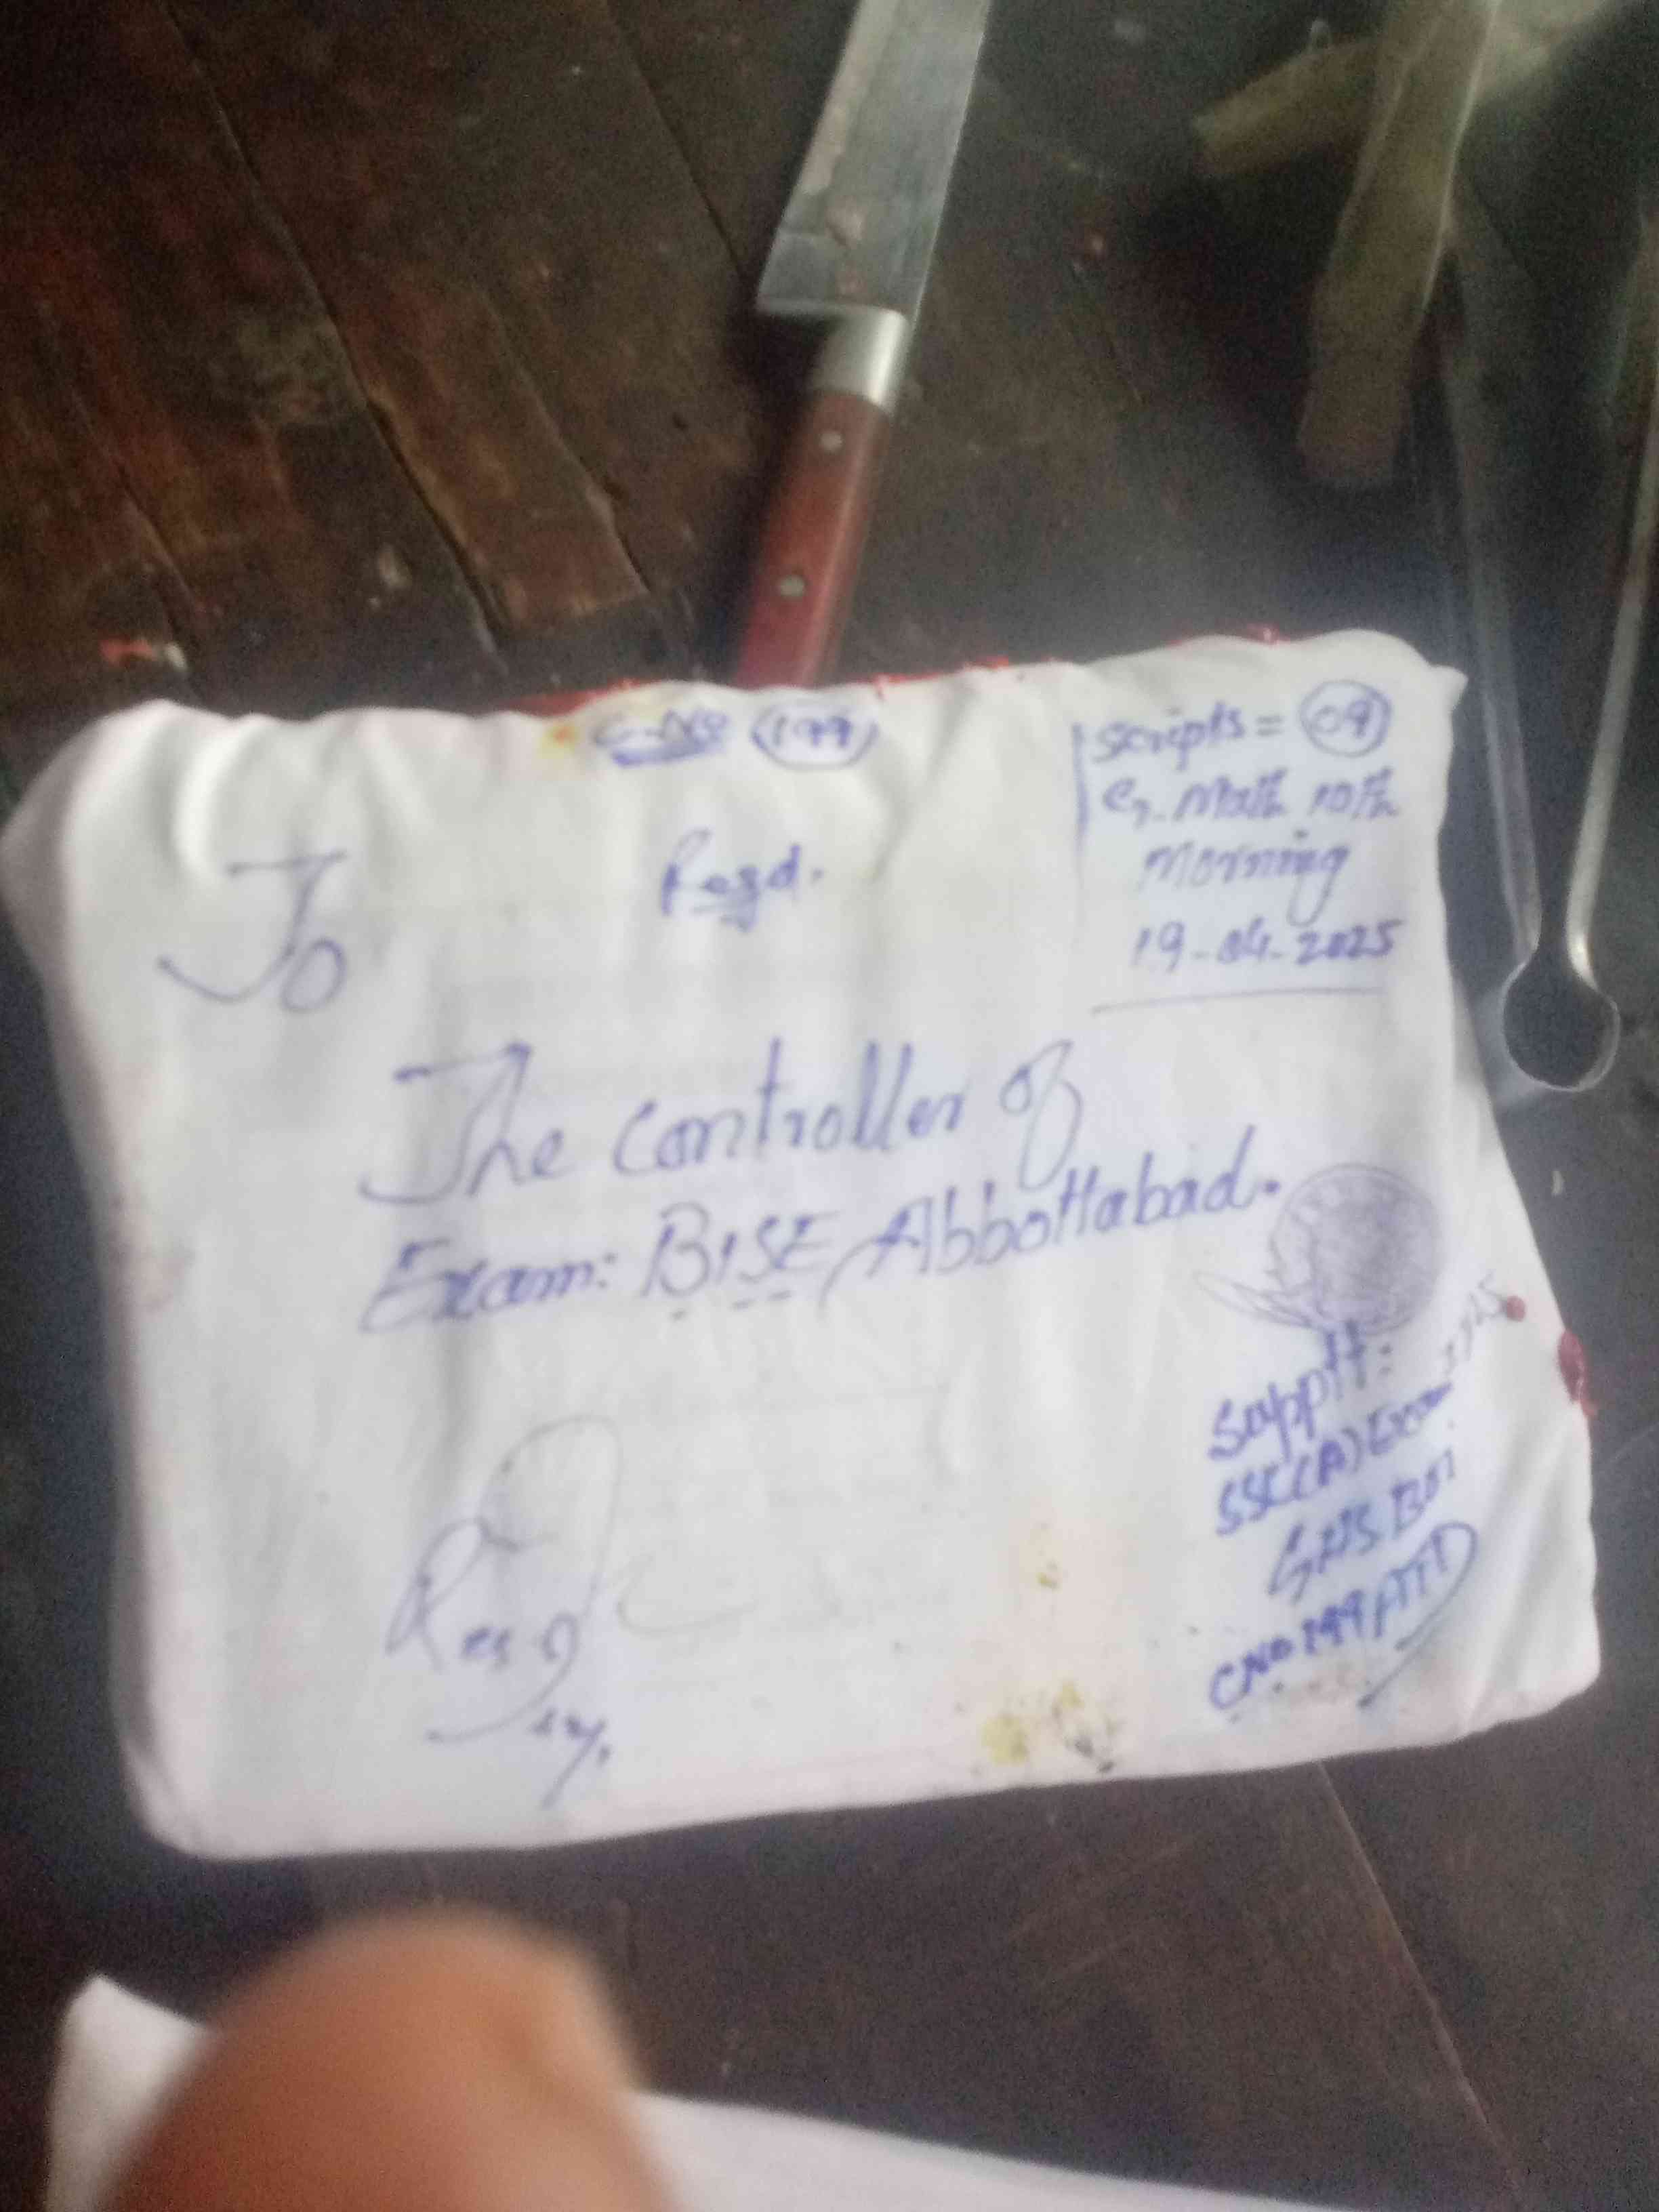 C-No (199)
Scripts = (09)
G. Math 10th
Morning
19-04-2025
Regd.
To
The Controller of
Exam: BISE Abbottabad.
Supptt:
SSC(A) Exam
GHS Boi
CNo 199 ATD